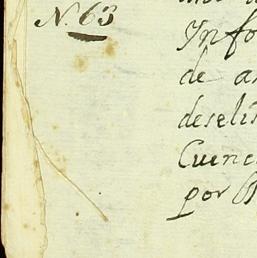 N. 63
Info
de a
deseli
Cuenc
por